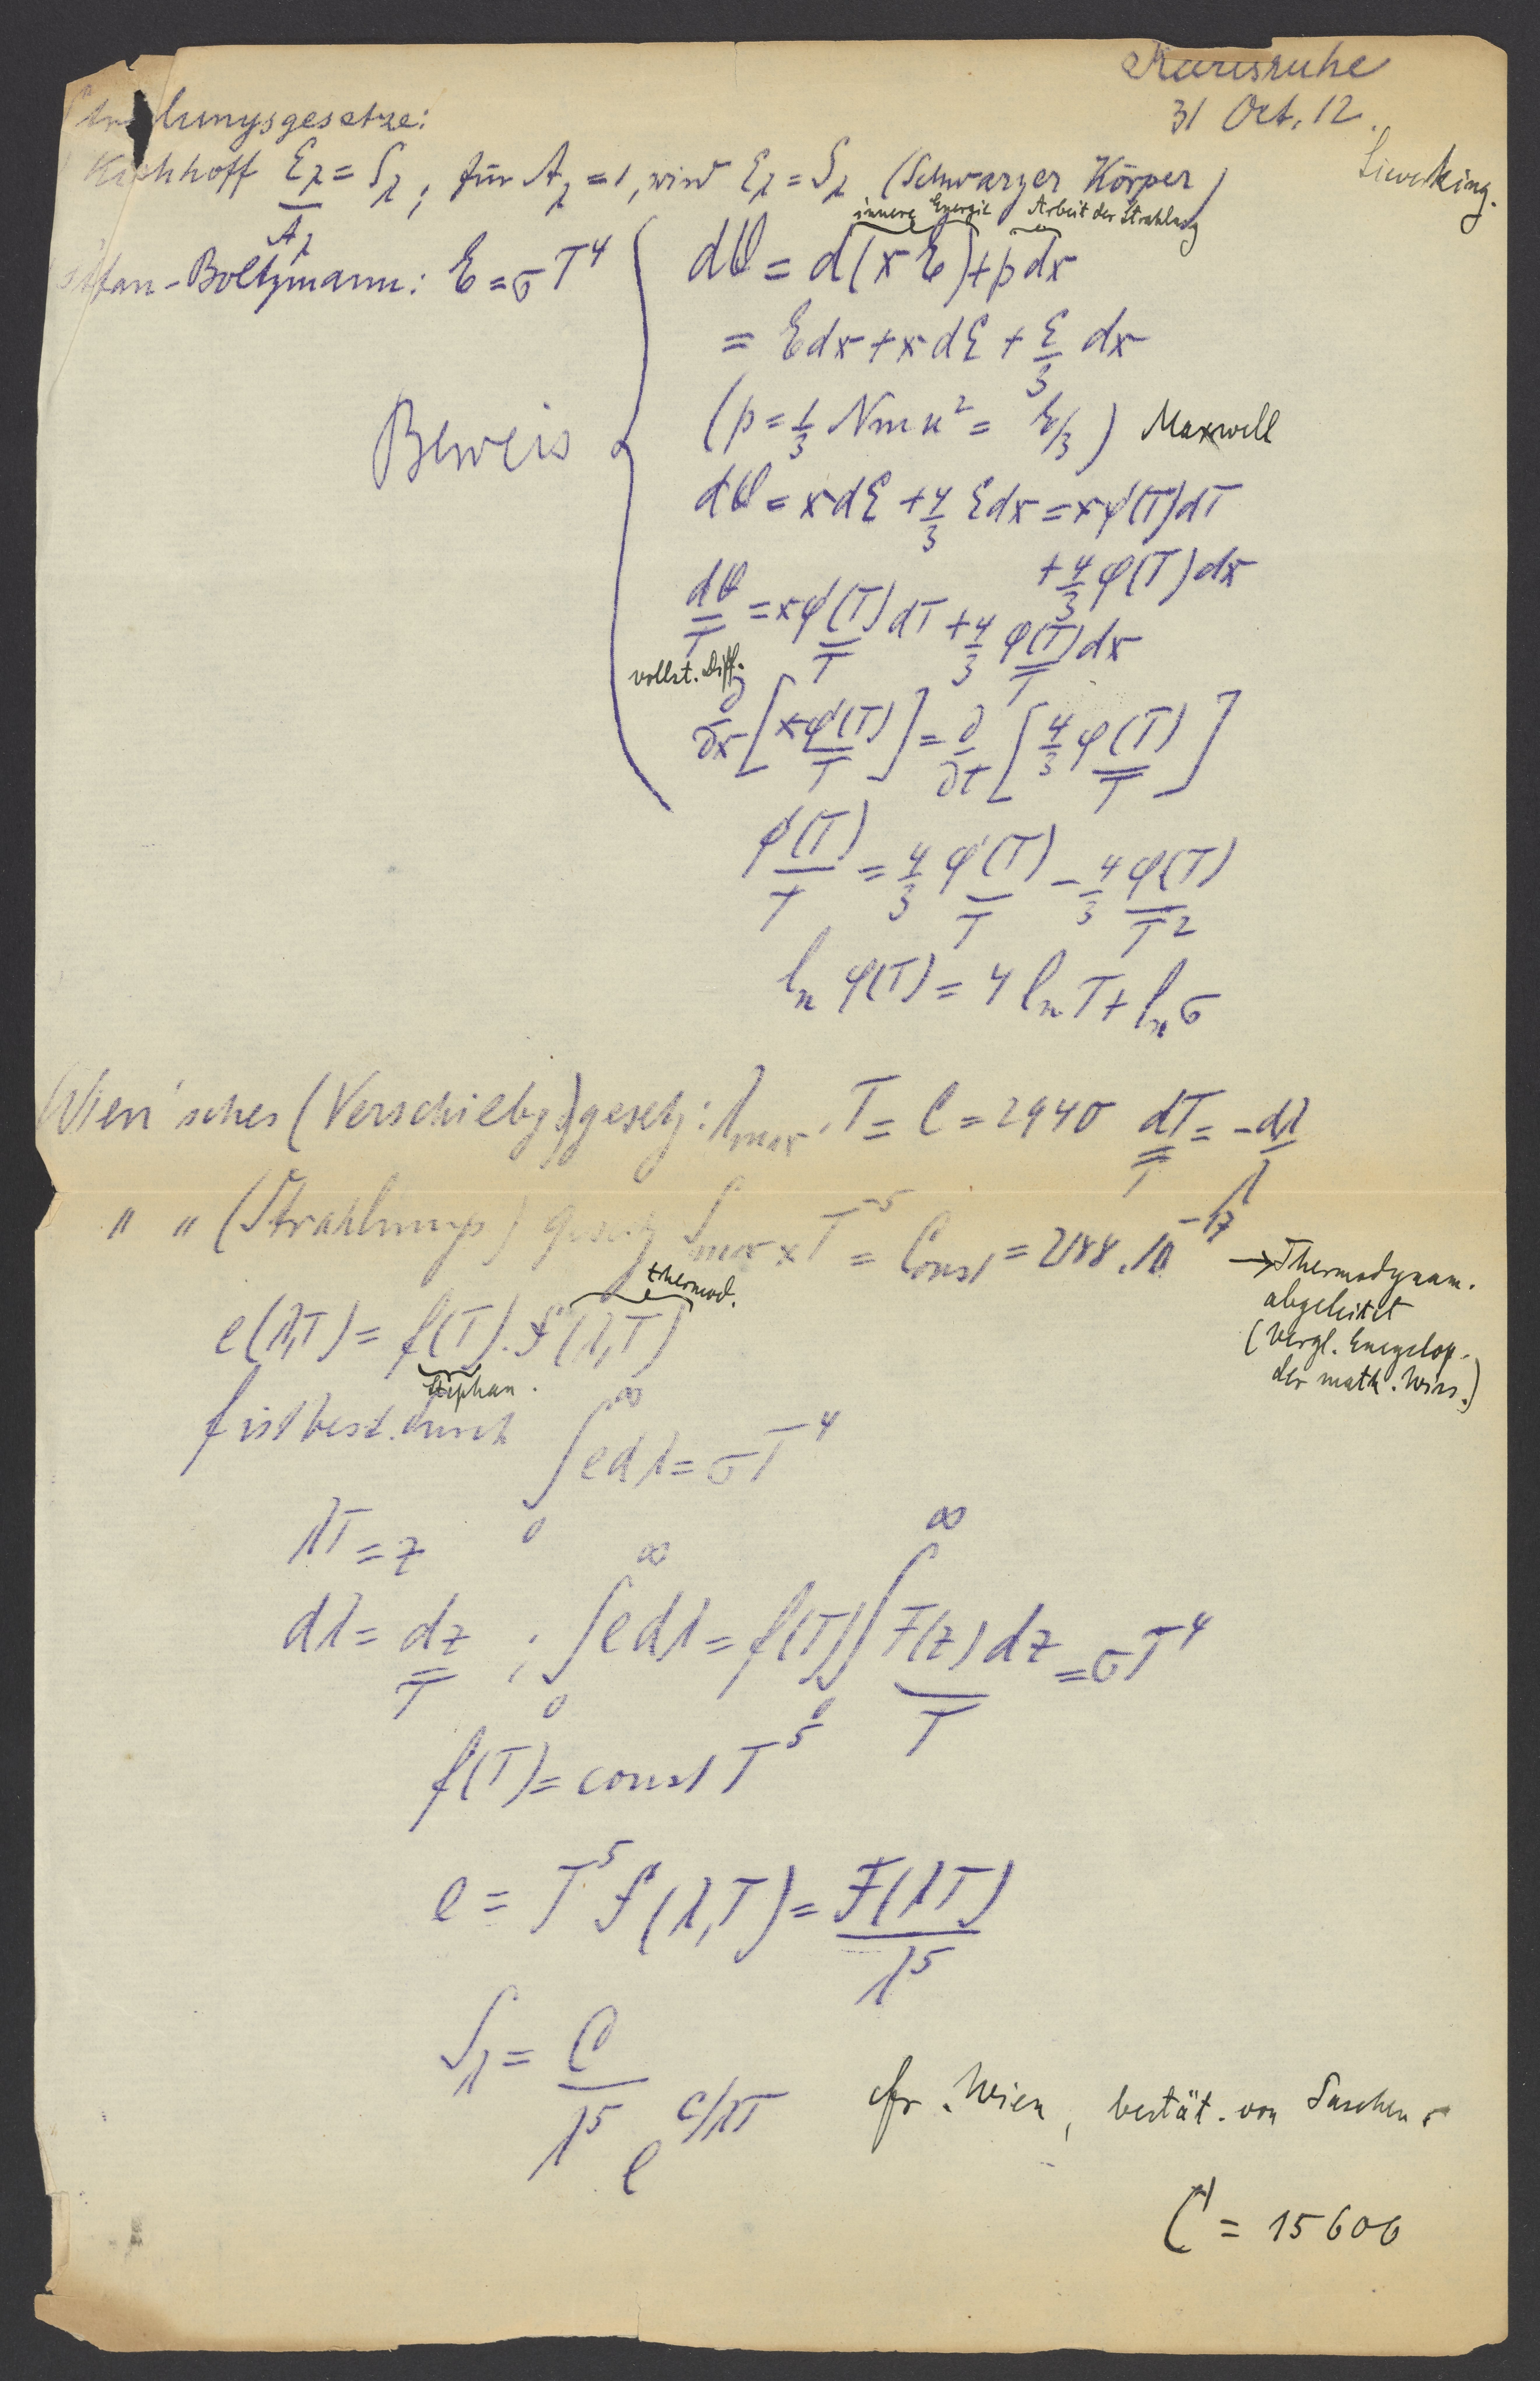 Karlsruhe
31 Oct. 12.
Strahlungsgesetze:
Sieveking.
Kirchhoff Eλ/Aλ = Sλ; für Aλ = 1, wird Eλ = Sλ (Schwarzer Körper)
innere Energie Arbeit der Strahlung
Stefan-Boltzmann: E = σT⁴ dQ = d(xE) + pdx
= Edx + xdE + E/3 dx
Beweis (p = 1/3 Nmu² = E/3) Maxwell
dQ = xdE + 4/3 Edx = xφ'(T)dT
+ 4/3 φ(T)dx
dQ/T = xφ'(T)/T dT + 4/3 φ(T)/T dx
vollst. Diff.
∂/∂x [xφ'(T)/T] = ∂/∂t [4/3 φ(T)/T]
φ'(T)/T = 4/3 φ'(T)/T - 4/3 φ(T)/T²
ln φ(T) = 4 ln T + ln σ
Wien'sches (Verschiebg.)gesetz: λmax. T = C = 2940 dT/T = -dλ/λ
" " (Strahlungs) Gesetz Smax × T⁻⁵ = Const = 2188.10⁻¹⁷
→ Thermodynam.
abgeleitet
(Vergl. Encyclop.
der math. Wiss.)
thermod.
e(λ,T) = f(T). F(λ,T)
Stephan.
f ist best. durch ∫₀^∞ edλ = σT⁴
λT = z
dλ = dz/T ; ∫₀^∞ edλ = f(T)∫₀^∞ F(z)/T dz = σT⁴
f(T) = const T⁵
e = T⁵ F(λ,T) = F(λT)/λ⁵
Sλ = C/λ⁵ e^c/λT cfr. Wien, bestät. von Paschen.
C = 15600